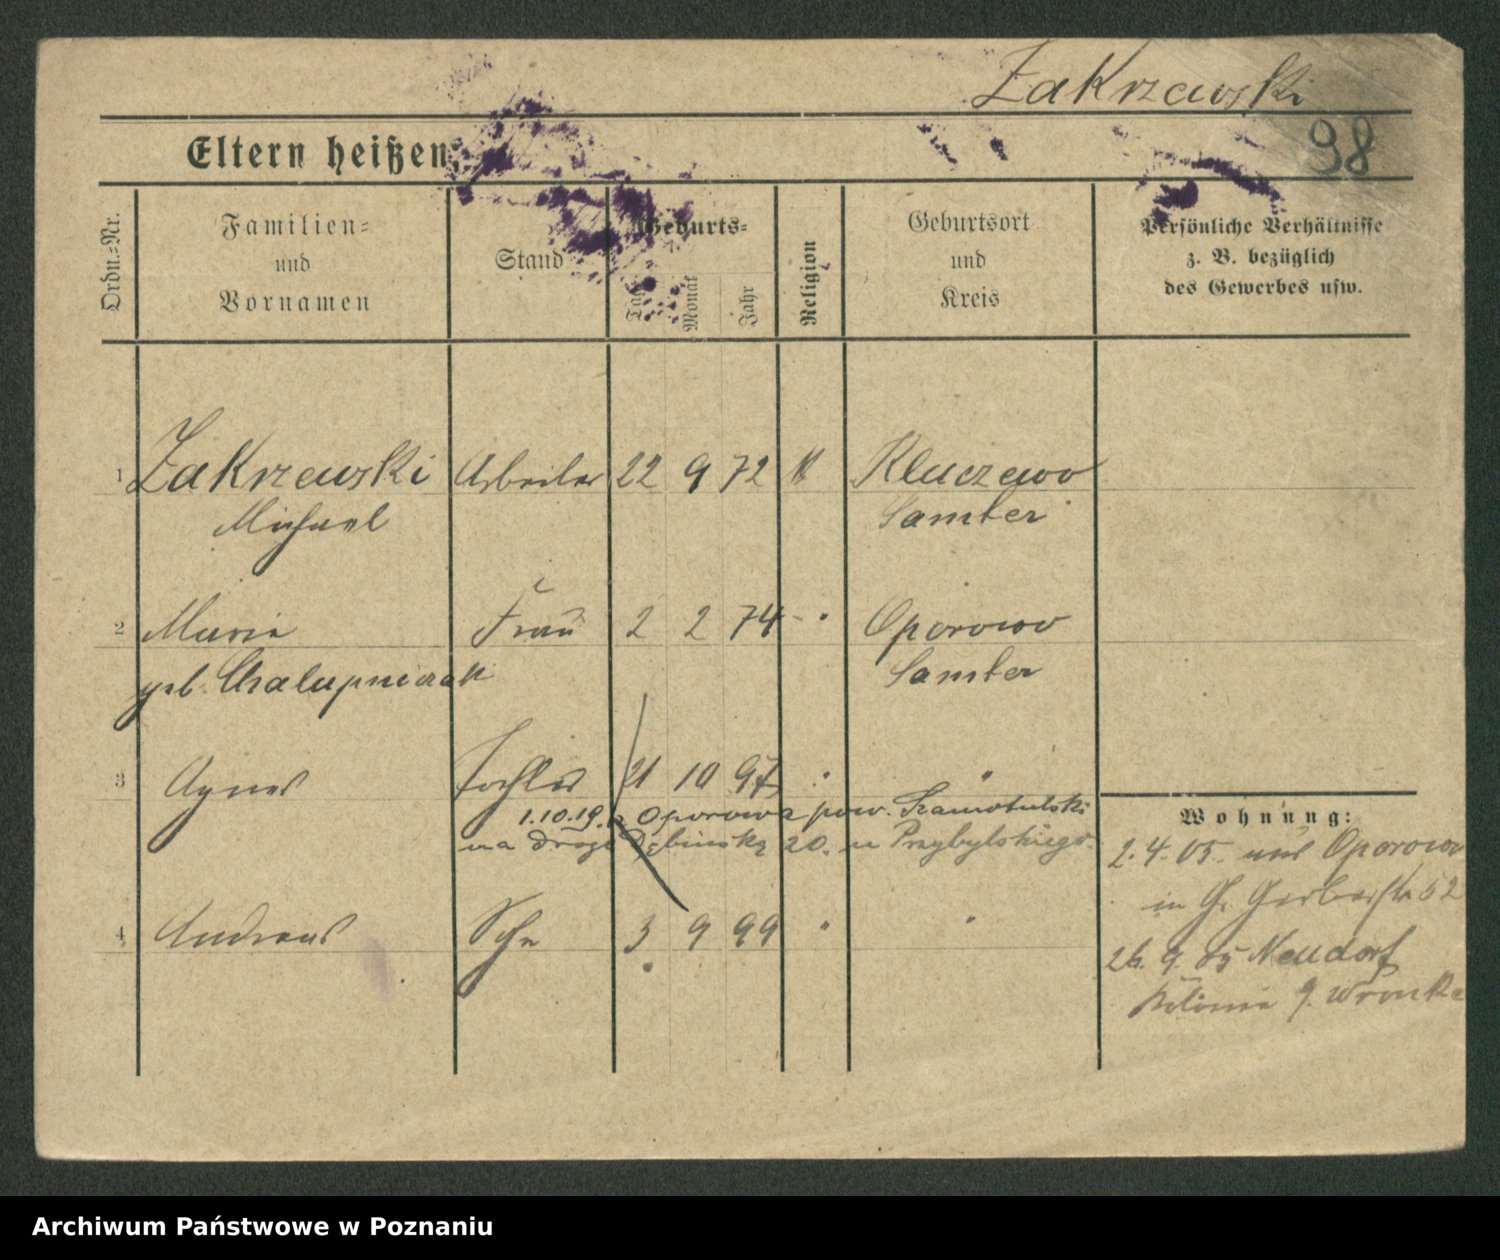 Zakrzewski
98
Eltern heißen:
Ordn.-Nr.
Familien-
und
Vornamen
Stand
Geburts-
Tag
Monat
Jahr
Religion
Geburtsort
und
Kreis
Persönliche Verhältnisse
z. B. bezüglich
des Gewerbes usw.
1 Zakrzewski Arbeiter 22 9 72 K Kluczewo
Michael Samter
2 Maria Frau 2 2 74 - " Oporowo
geb. Chalupniczak Samter
3 Agnes Tochter 21 10 97 " "
1.10.19. z Oporowa pow. Szamotulski
na drogę Dębińską 20. u Przybylskiego.
4 Andreas Sohn 3 9 99 " "
Wohnung:
2.4.05. aus Oporowo
in Gr. Gerberstr. 52
26.9.05 Neudorf
Kolonie b. Wronke
Archiwum Państwowe w Poznaniu